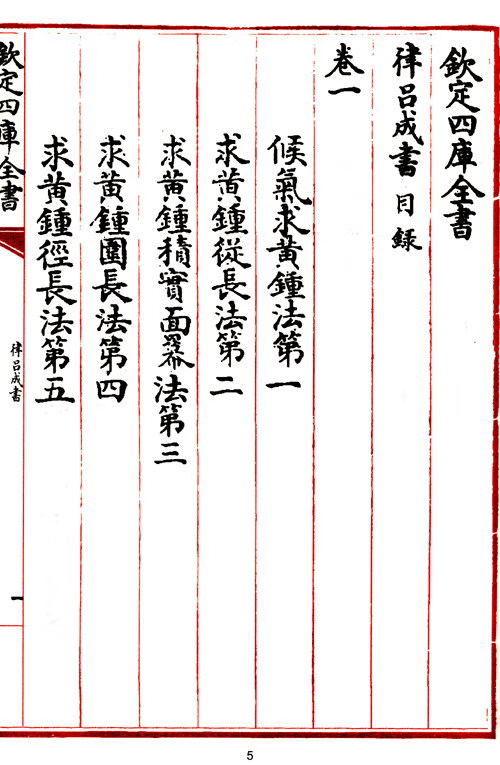 欽定四庫全書
律吕成書目録
卷一
候氣求黄鍾法第一
求黄鍾從長法第二
求黄鍾積實面冪法第三
求黄鍾圍長法第四
求黄鍾徑長法第五
欽定四庫全書
律吕成書
一
5